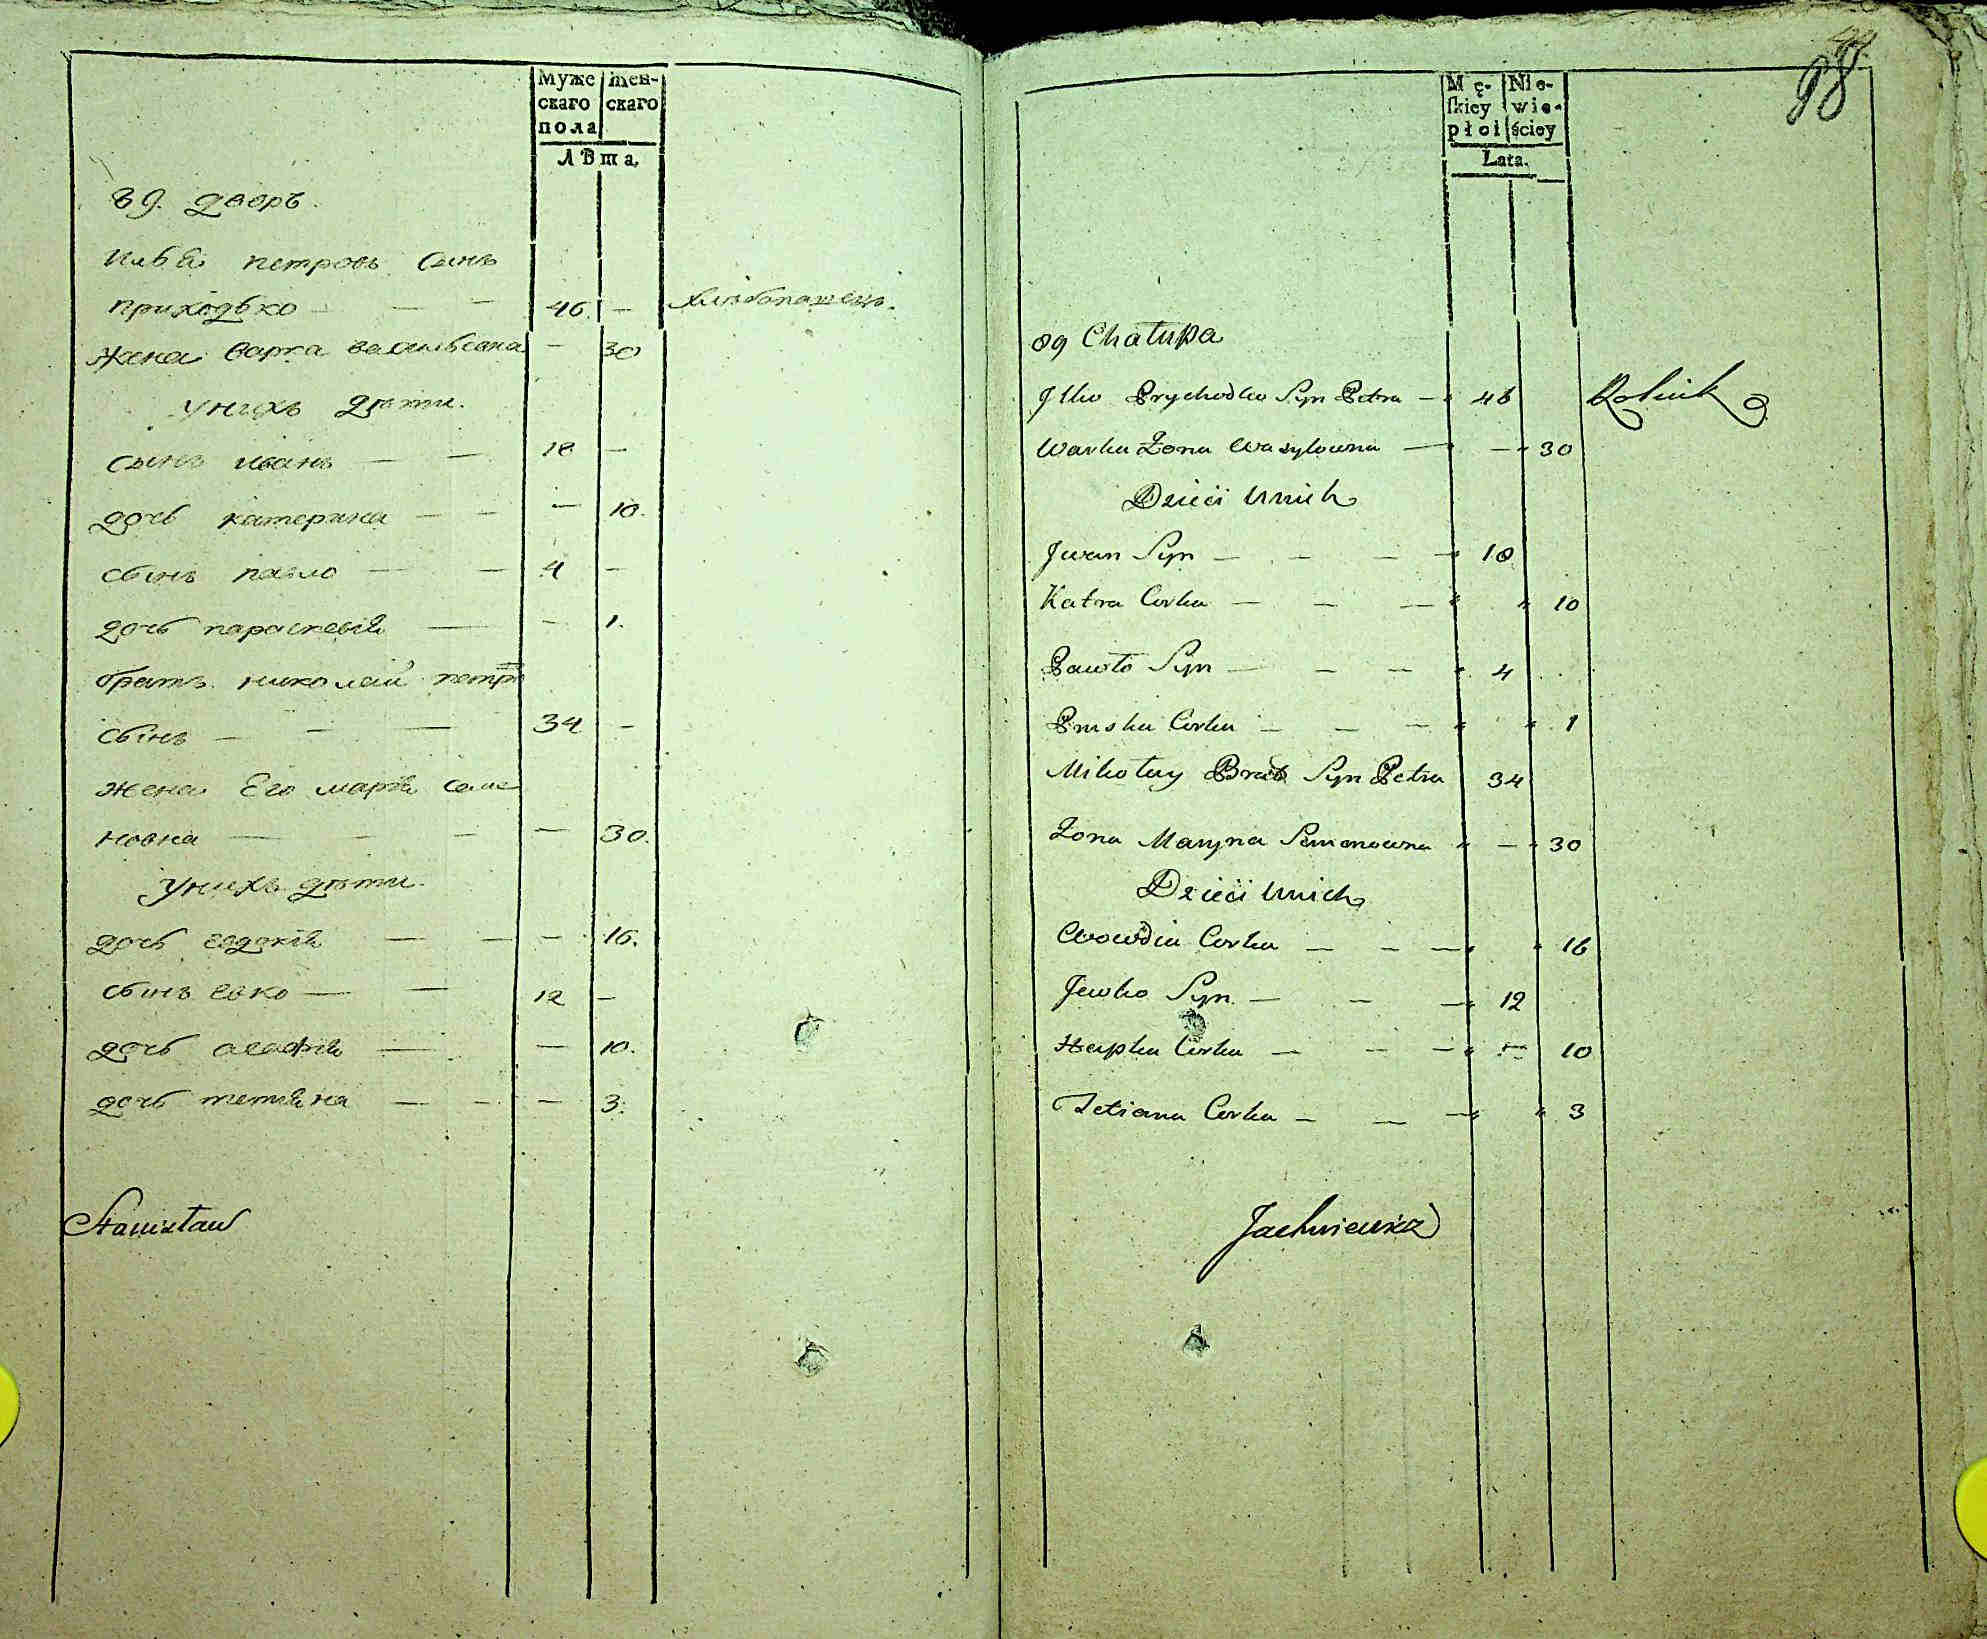 Муже­скаго пола
жен­скаго
лѣта.
89. дворъ.
Илья петровъ сынъ
приходько — — 46. — хлѣбопашецъ.
жена варка васильевна — 30
у нихъ дѣти.
сынъ иванъ — — 18 —
дочь катерина — — — 10.
сынъ павло — — 4 —
дочь параскевія — — 1.
братъ николай петро
сынъ — — — 34 —
жена Его марія семе
новна — — — — 30.
у нихъ дѣти.
дочь евдокія — — — 16.
сынъ евко — — 12 —
дочь агафія — — 10.
дочь тетіяна — — — 3.
Stanisław
98
Mę-skiey płci
Nie-wie-ściey
Lata.
89 Chałupa
Jlko Prychodko Syn Petra — 46 Rolnik
Warka Żona Wasylowna — — 30
Dzieci Unich
Jwan Syn — — — 18
Katra Corka — — — " 10
Pawło Syn — — — 4
Corka — — — " 1
Mikołay Brat Syn Petra 34
Żona Maryna Semenowna " — " 30
Dzieci Unich
Wowdia Corka — — — " 16
Jewko Syn — — — 12
Hapka Corka — — — — 10
Tetiana Corka — — — " 3
Jachniewicz